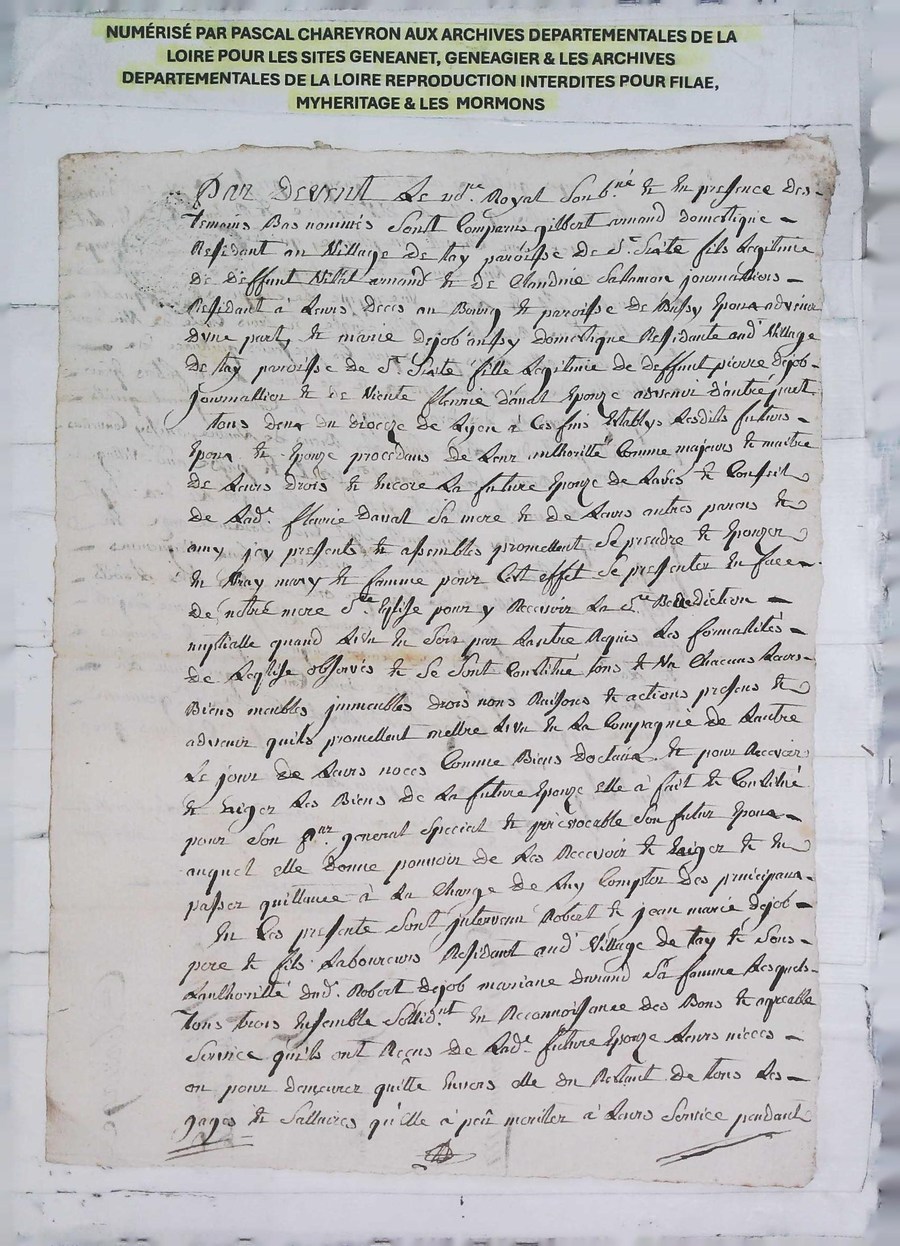 NUMÉRISÉ PAR PASCAL CHAREYRON AUX ARCHIVES DEPARTEMENTALES DE LA
LOIRE POUR LES SITES GENEANET, GENEAGIER & LES ARCHIVES
DEPARTEMENTALES DE LA LOIRE REPRODUCTION INTERDITES POUR FILAE,
MYHERITAGE & LES MORMONS
Par Devent Le no.re Royal Sousb.né & En presence des
temoins Bas nommés Sont Comparus gilbert arnaud domestique
Residant au Village de tay paroisse de St. Sixte fils Legitime
de deffunt Villat arnaud & de Claudine Salamon journalliers
Residant à Leurs Deces au Bourg & paroisse de Bussy Epoux advenir
d'une part, & marie dejob aussy domestique Residante aud Village
de tay paroisse de St. Sixte fille Legitime de deffunt pierre dejob
journallier & de Vivente fleurie d'avat Epouze advenir d'autre part
tous deux du dioceze de Lyon à Ces fins Establys Lesdits futurs
Epoux & Epouze procedans de Leur authoritté Comme majeurs & maitre
de Leurs drois & Encore La future Epouze de Lavis & Conseil
de Lad.e fleurie davat Sa mere & de Leurs autres parens &
amy jcy presents & assemblés promettent Se prendre & Epouzer
En Vray mary & famme pour Cest effet Se presenter En face
de notre mere S.te Eglise pour y Recevoir La S.te Benediction
nuptialle quand Lun En Sera par Lautre Requis Les formalités
de Leglise observés & Se Sont Constitué tous & Un Chacuns Leurs
Biens meubles jmmeubles drois noms Raisons & actions presens &
advenir quils promettent mettre Lun En La Compagnie de Lautre
Le jour de Leurs noces Comme Biens doctaux & pour Recevoir
& Exiger Les Biens de La future Epouze elle à fait & Constitué
pour Son p.ur general Special & jrrevocable Son futur Epoux
auquel elle donne pouvoir de Les Recevoir & Exiger & En
passer quittance à La Charge de Luy Compter des principaux
En Ces presente Sont jntervenu Robert & jean marie dejob
pere & fils Laboureurs Residant aud Village de tay & Sous
Lauthoritté dud. Robert dejob mariane durand Sa famme Lesquels
tous trois Ensemble Sollid.nt En Reconnoissance des Bons & agreable
Service quils ont Reçus de Lad.e future Epouze Leurs nieces
ou pour demeurer quitte Envers elle du Restant de tous Les
gages & Sallaires qu'elle à peû meriter à Leurs Service pendant